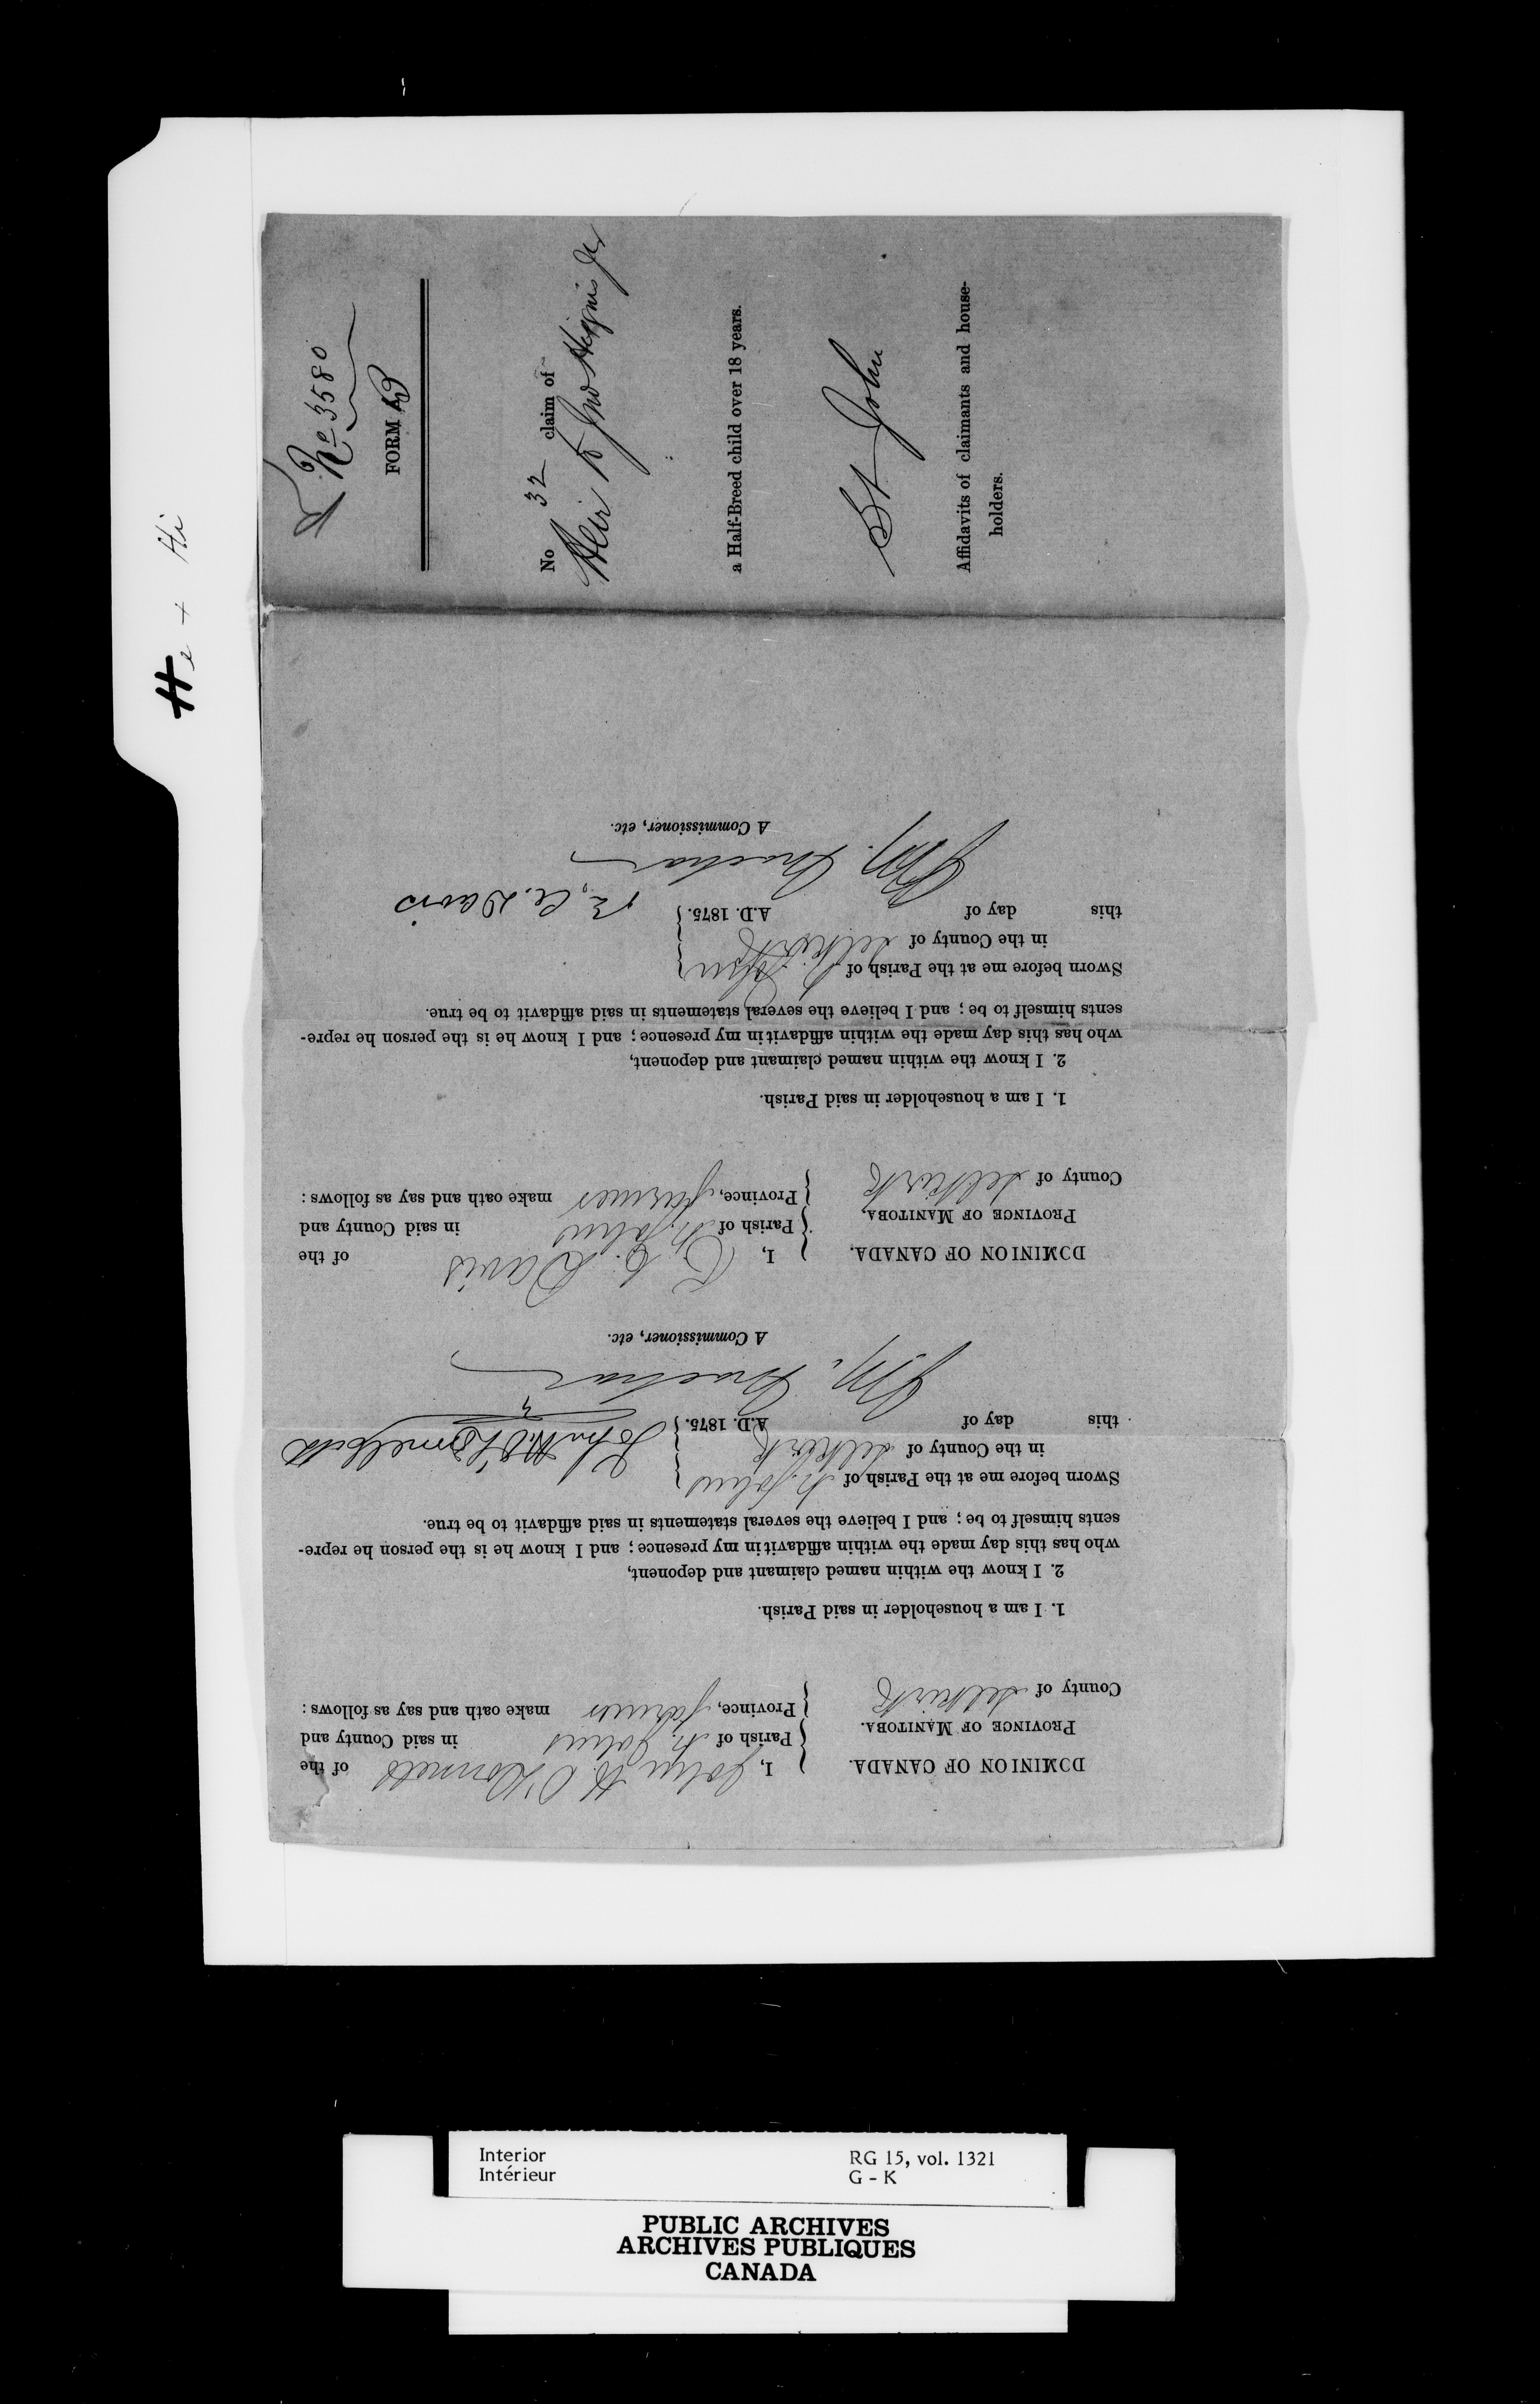 He + Hi
No 3580
FORM B
No 32 claim of
Heir to Jno Higgins Jr
a Half-Breed child over 18 years.
St John
Affidavits of claimants and house-
holders.
DOMINION OF CANADA.
PROVINCE OF MANITOBA.
County of Selkirk
I, John H. O'Donnell of the
Parish of St. Johns in said County and
Province, farmer make oath and say as follows:
1. I am a householder in said Parish.
2. I know the within named claimant and deponent,
who has this day made the within affidavit in my presence; and I know he is the person he repre-
sents himself to be; and I believe the several statements in said affidavit to be true.
Sworn before me at the Parish of St. Johns
in the County of Selkirk
this day of A.D. 1875.
A Commissioner, etc.
DOMINION OF CANADA.
PROVINCE OF MANITOBA,
County of Selkirk
I, Davis of the
Parish of St. Johns in said County and
Province, farmer make oath and say as follows:
1. I am a householder in said Parish.
2. I know the within named claimant and deponent,
who has this day made the within affidavit in my presence; and I know he is the person he repre-
sents himself to be; and I believe the several statements in said affidavit to be true.
Sworn before me at the Parish of St. John
in the County of Selkirk
this day of A.D. 1875.
Davis
A Commissioner, etc.
Interior RG 15, vol. 1321
Intérieur G - K
PUBLIC ARCHIVES
ARCHIVES PUBLIQUES
CANADA